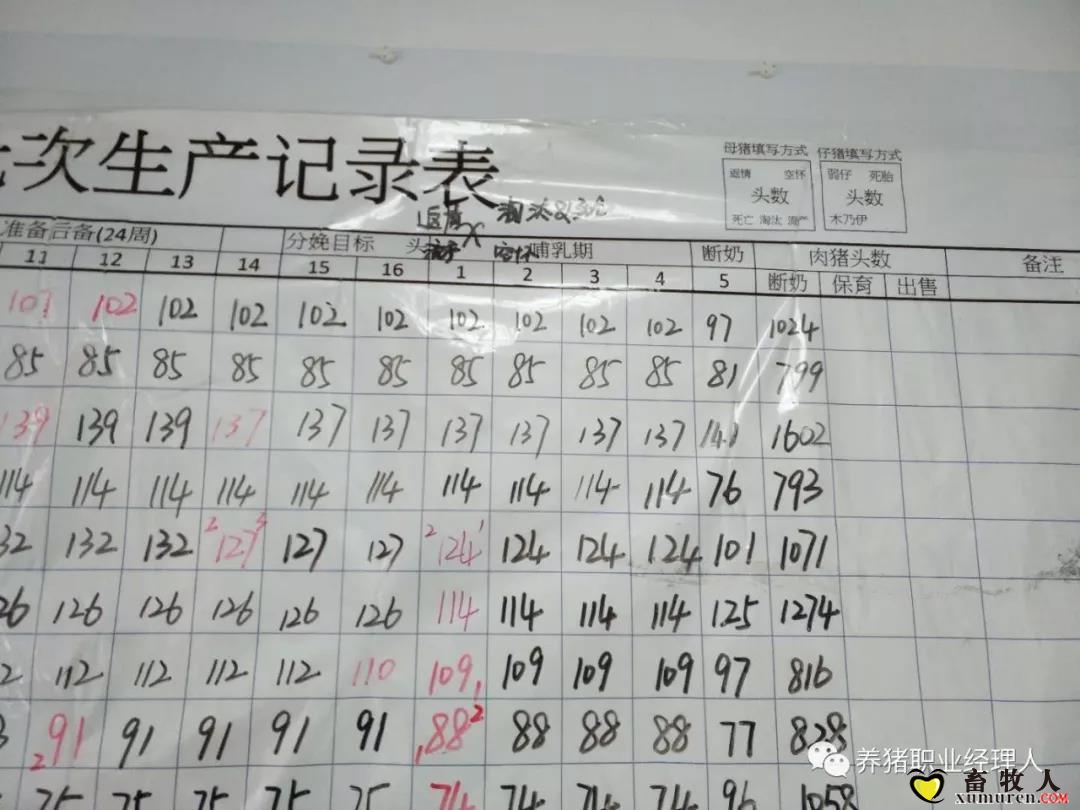 次生产记录表
母猪填写方式 仔猪填写方式
返情 空怀 弱仔 死胎
头数 头数
死亡 淘汰 流产 木乃伊
返情 淘汰 死亡
空怀
准备后备(24周) 分娩目标 头 哺乳期 断奶 肉猪头数 备注
11 12 13 14 15 16 1 2 3 4 5 断奶 保育 出售
101 102 102 102 102 102 102 102 102 102 97 1024
85 85 85 85 85 85 85 85 85 85 81 799
139 139 139 137 137 137 137 137 137 137 141 1602
114 114 114 114 114 114 114 114 114 114 76 793
32 132 132 2 127 3 127 127 2 124 1 124 124 124 101 1071
26 126 126 126 126 126 114 114 114 114 125 1274
2 112 112 112 112 110 109 1 109 109 109 97 816
3 2 91 91 91 91 91 1 88 2 88 88 88 77 828
75 75 75 75 75 74 74 74 74 96 1058
养猪职业经理人
畜牧人
xumuren.com